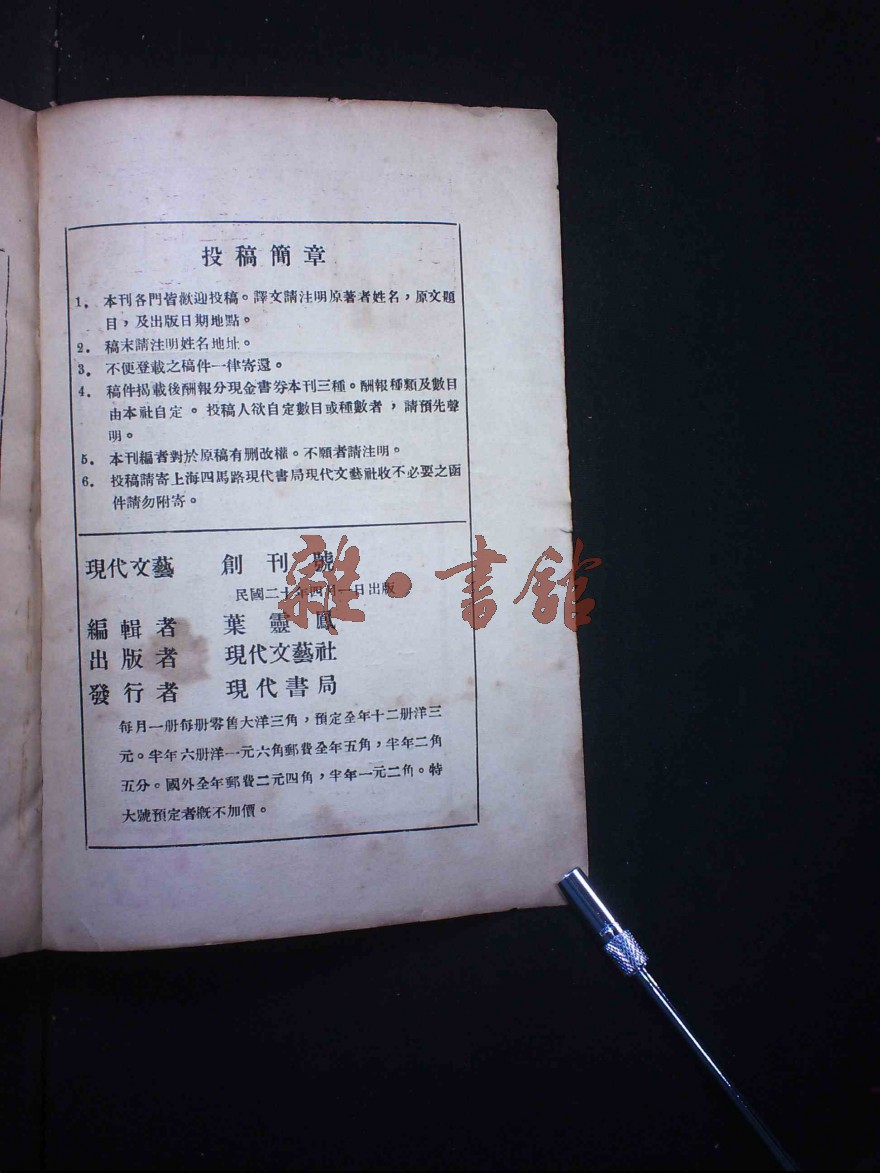 投稿簡章
1. 本刊各門皆歡迎投稿。譯文請注明原著者姓名，原文題
目，及出版日期地點。
2. 稿末請注明姓名地址。
3. 不便登載之稿件一律寄還。
4. 稿件揭載後酬報分現金書券本刊三種。酬報種類及數目
由本社自定。投稿人欲自定數目或種數者，請預先聲
明。
5. 本刊編者對於原稿有刪改權。不願者請注明。
6. 投稿請寄上海四馬路現代書局現代文藝社收不必要之函
件請勿附寄。
現代文藝 創刊號
民國二十年四月一日出版
編輯者 葉靈鳳
出版者 現代文藝社
發行者 現代書局
每月一册每册零售大洋三角，預定全年十二册洋三
元。半年六册洋一元六角郵費全年五角，半年二角
五分。國外全年郵費二元四角，半年一元二角。特
大號預定者概不加價。
雜·書館